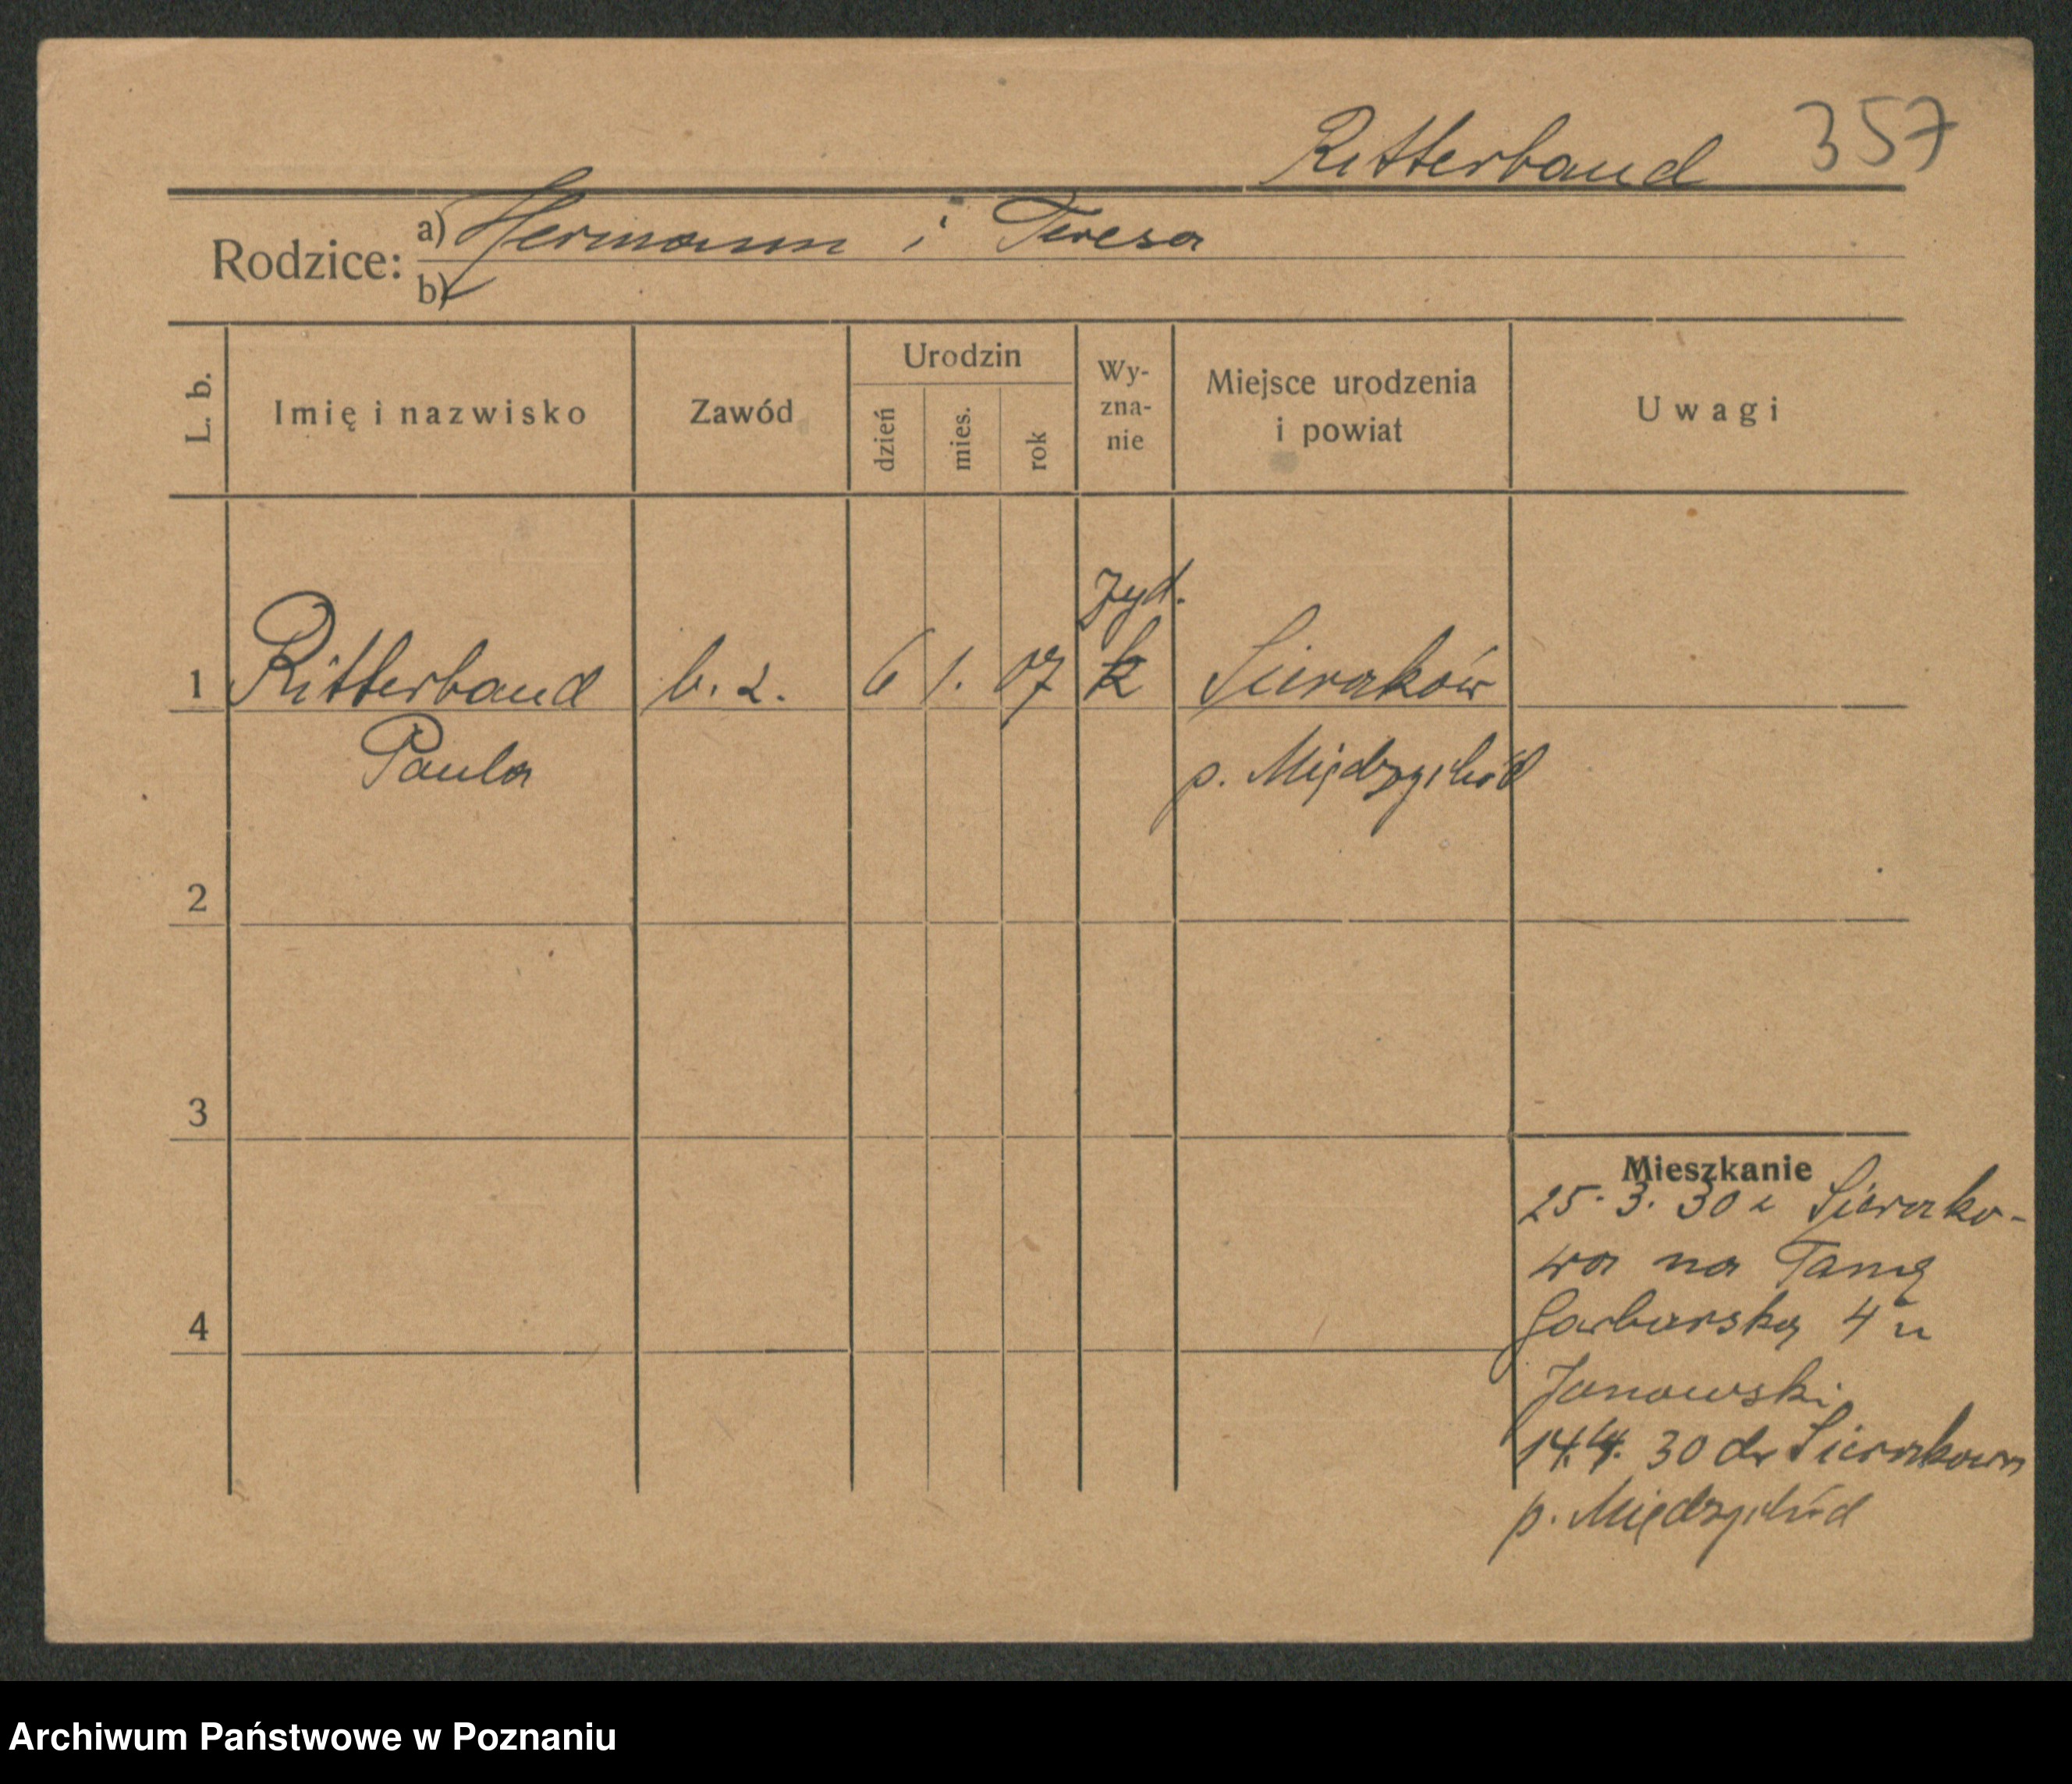 Ritterband 357
Rodzice: a) Hermann i Teresa
b)
L. b.
Imię i nazwisko
Zawód
Urodzin
dzień
mies.
rok
Wy-
zna-
nie
Miejsce urodzenia
i powiat
Uwagi
żyd.
1 Ritterband b. z. 6 1. 07 k Sieraków
Paula p. Międzychód
2
3
4
Mieszkanie
25. 3. 30 z Sierako-
wa na Tamę
Garbarską 4 u
Janowski
14.4. 30 do Sierakowa
p. Międzychód
Archiwum Państwowe w Poznaniu